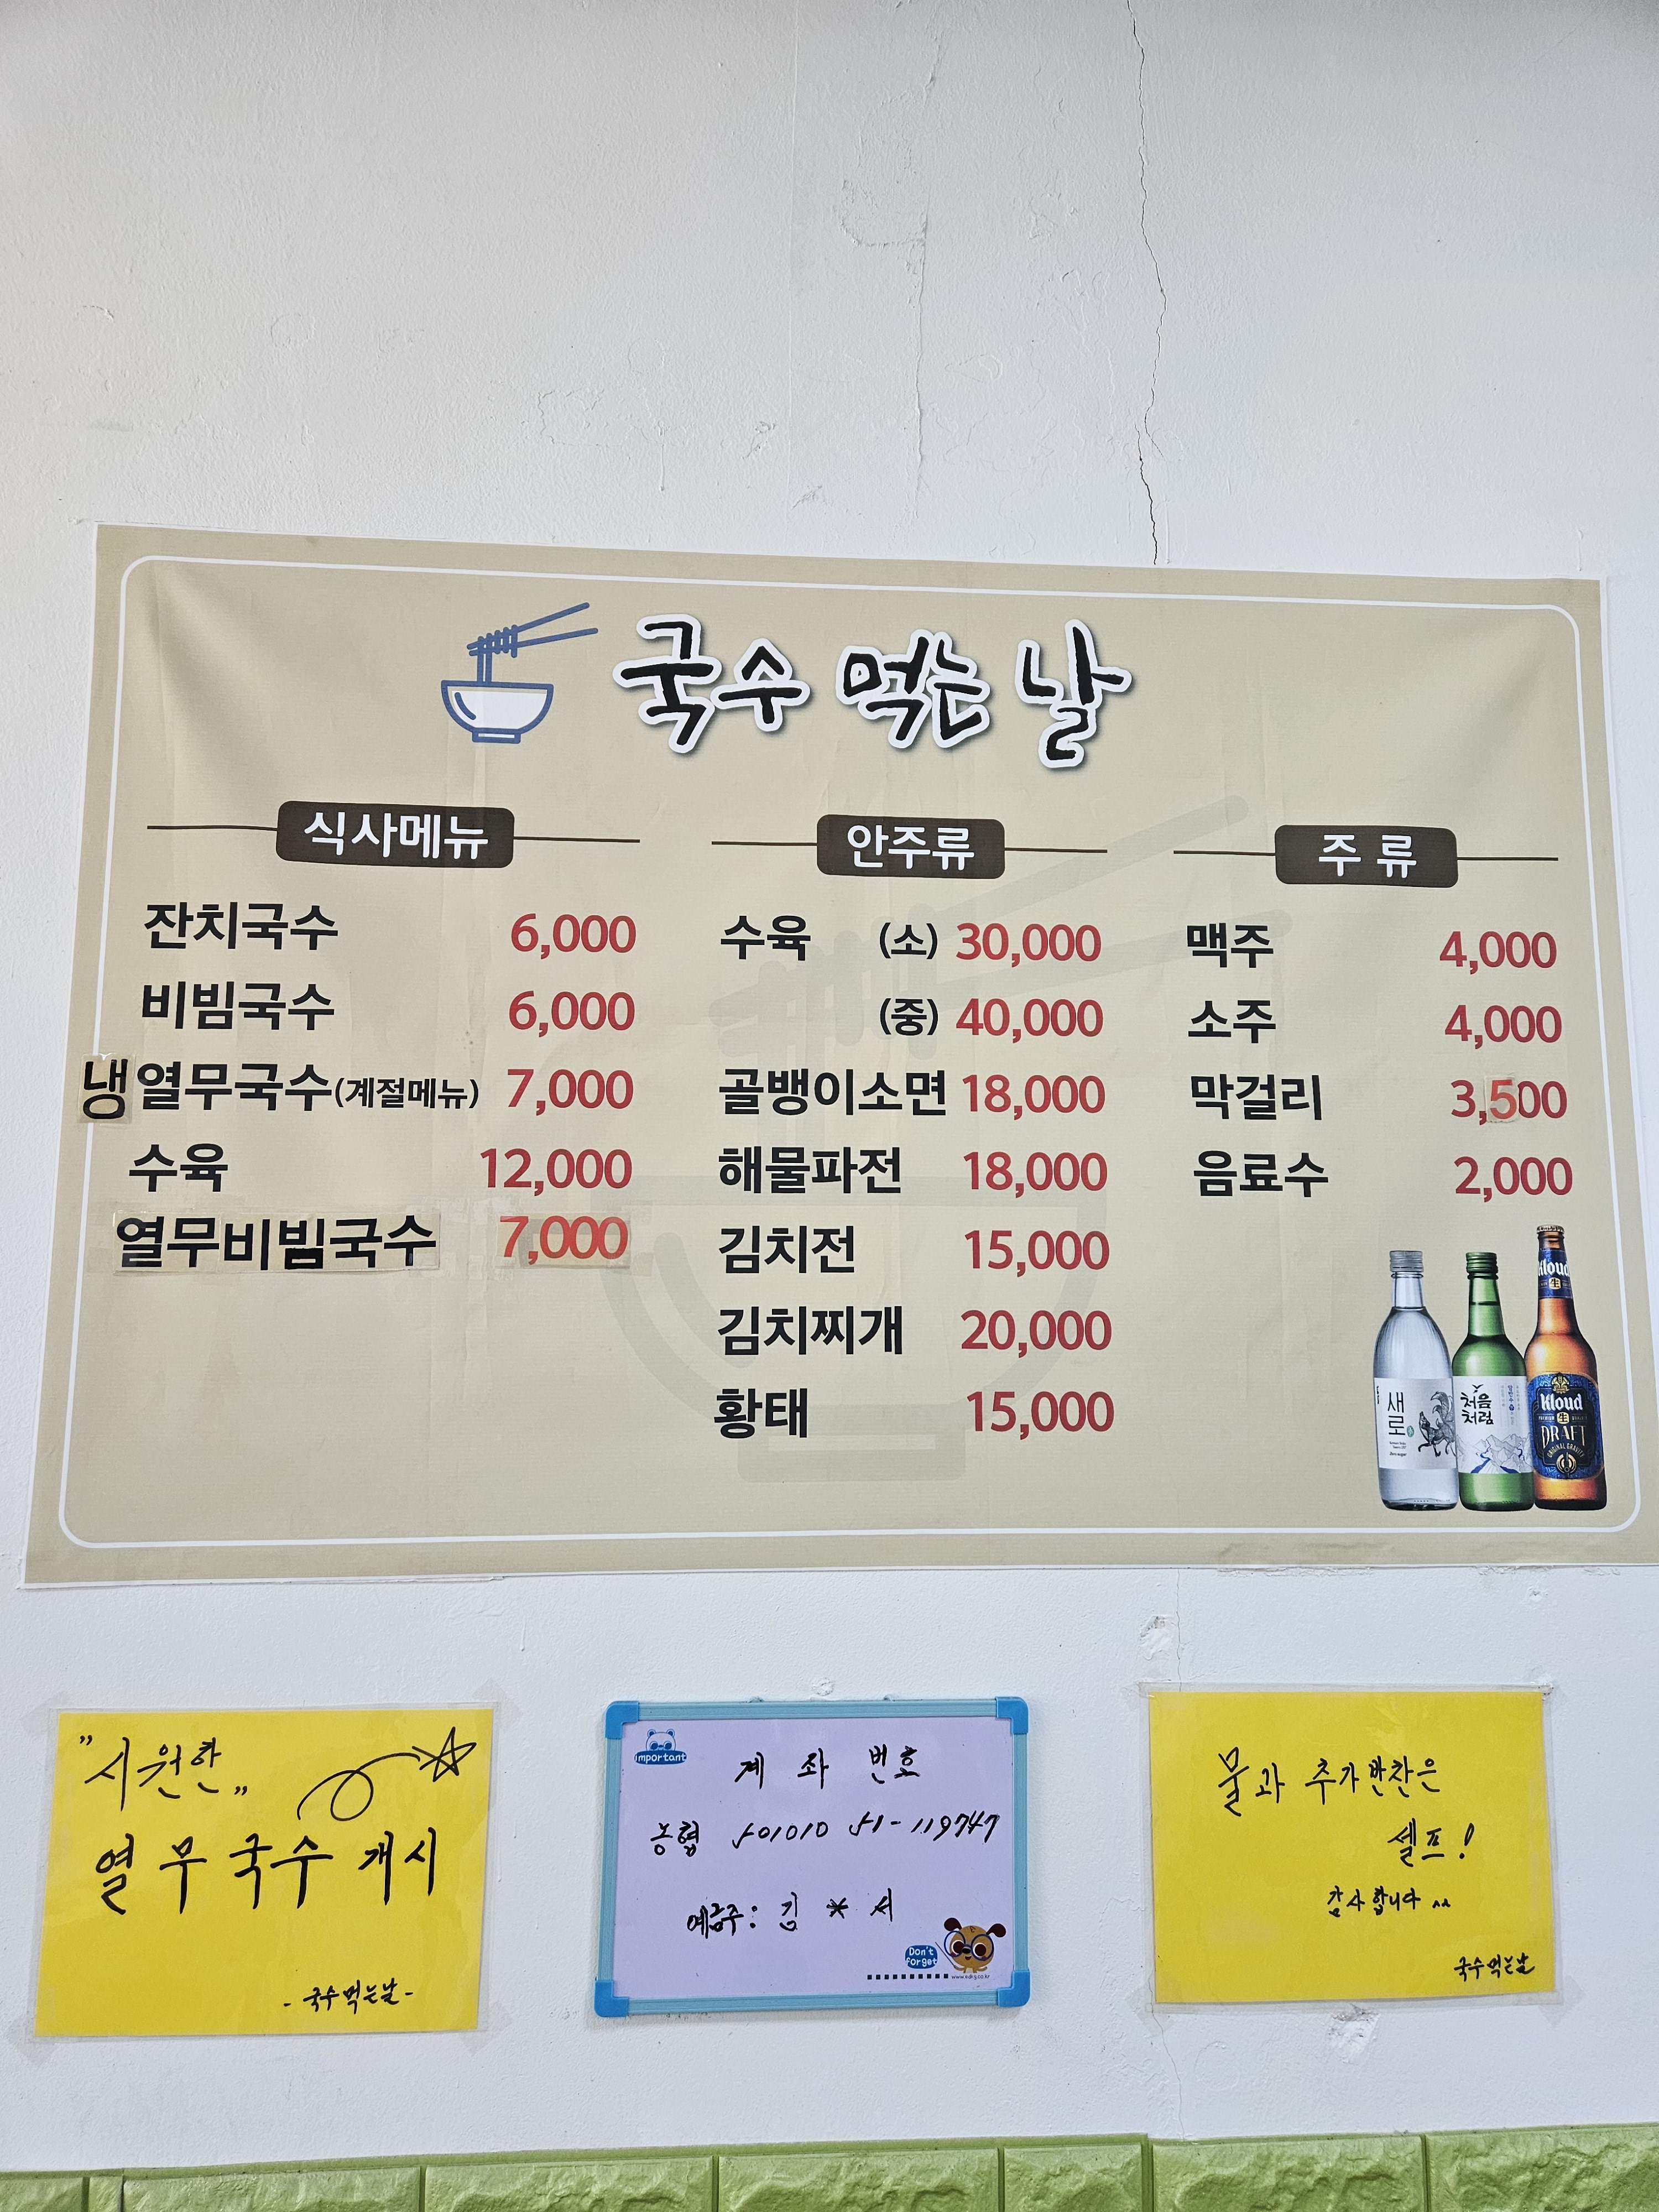 국수 먹는 날
식사메뉴
잔치국수 6,000
비빔국수 6,000
냉열무국수(계절메뉴) 7,000
수육 12,000
열무비빔국수 7,000
안주류
수육 (소) 30,000
(중) 40,000
골뱅이소면 18,000
해물파전 18,000
김치전 15,000
김치찌개 20,000
황태 15,000
주 류
맥주 4,000
소주 4,000
막걸리 3,500
음료수 2,000
새로
처음
처럼
Kloud
生
Kloud
生
DRAFT
ORIGINAL GRAVITY
"시원한"
열무국수 개시
- 국수먹는날 -
Important
계 좌 번호
농협 501010 51-119747
예금주: 김 * 서
Don't
forget
물과 추가반찬은
셀프!
감사합니다 ^^
국수먹는날